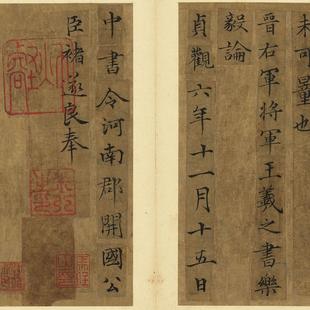 未可量也
晉右軍將軍王羲之書樂
毅論
貞觀六年十一月十五日
中書令河南郡開國公
臣褚遂良奉